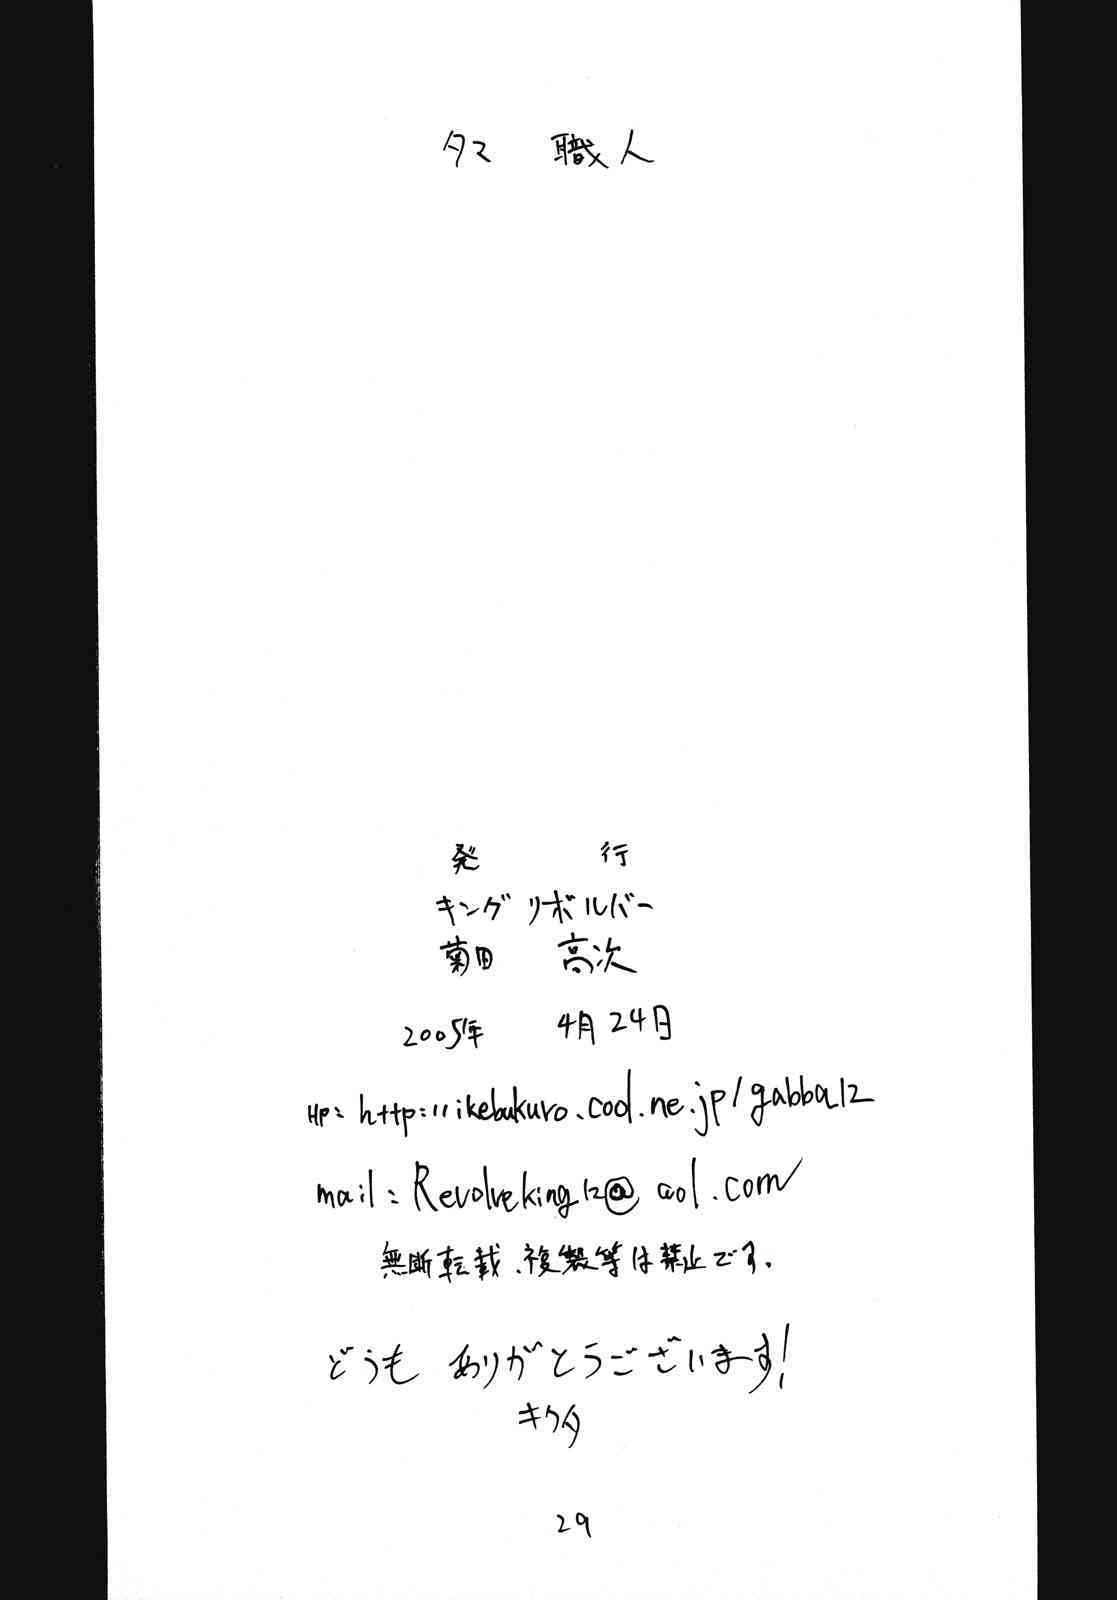 タマ 職人
発 行
キングリボルバー
菊田 高次
2005年 4月24日
HP: http://ikebukuro.cool.ne.jp/gabba12
mail: Revolveking12@aol.com
無断転載、複製等は禁止です。
どうも ありがとうございます!
キクタ
29